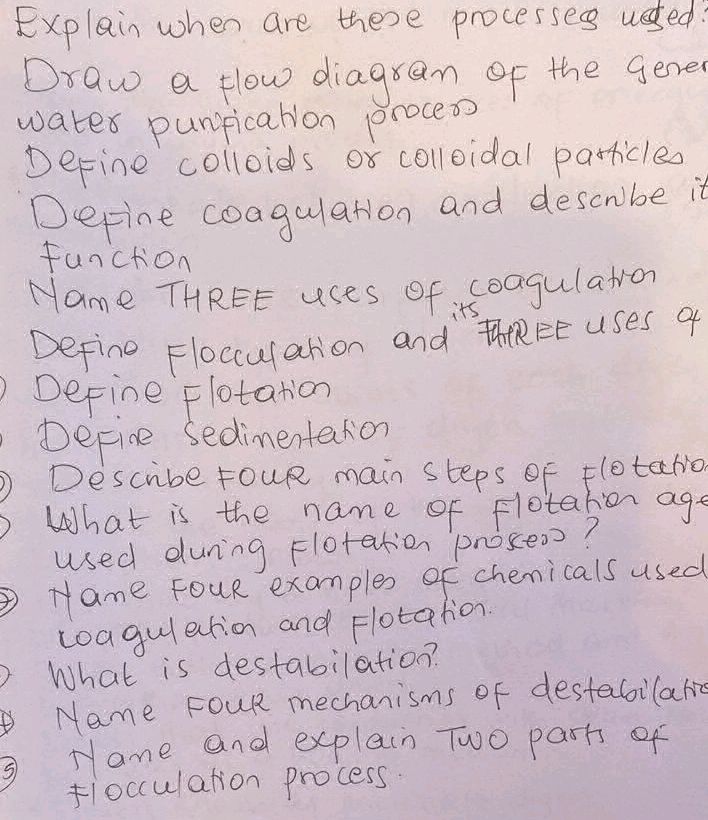 Explain when are these processes used?
Draw a flow diagram of the Gener
water purification process
Define colloids or colloidal particles
Define coagulation and describe it
function
Name THREE uses of coagulation
its
Define Flocculation and THREE uses of
Define Flotation
Define Sedimentation
Describe FOUR main steps of Flotatio
What is the name of Flotation age
used during Flotation process?
Name FOUR examples of chemicals used
coagulation and Flotation.
What is destabilation?
Name FOUR mechanisms of destabilatio
Name and explain TWO parts of
Flocculation process.